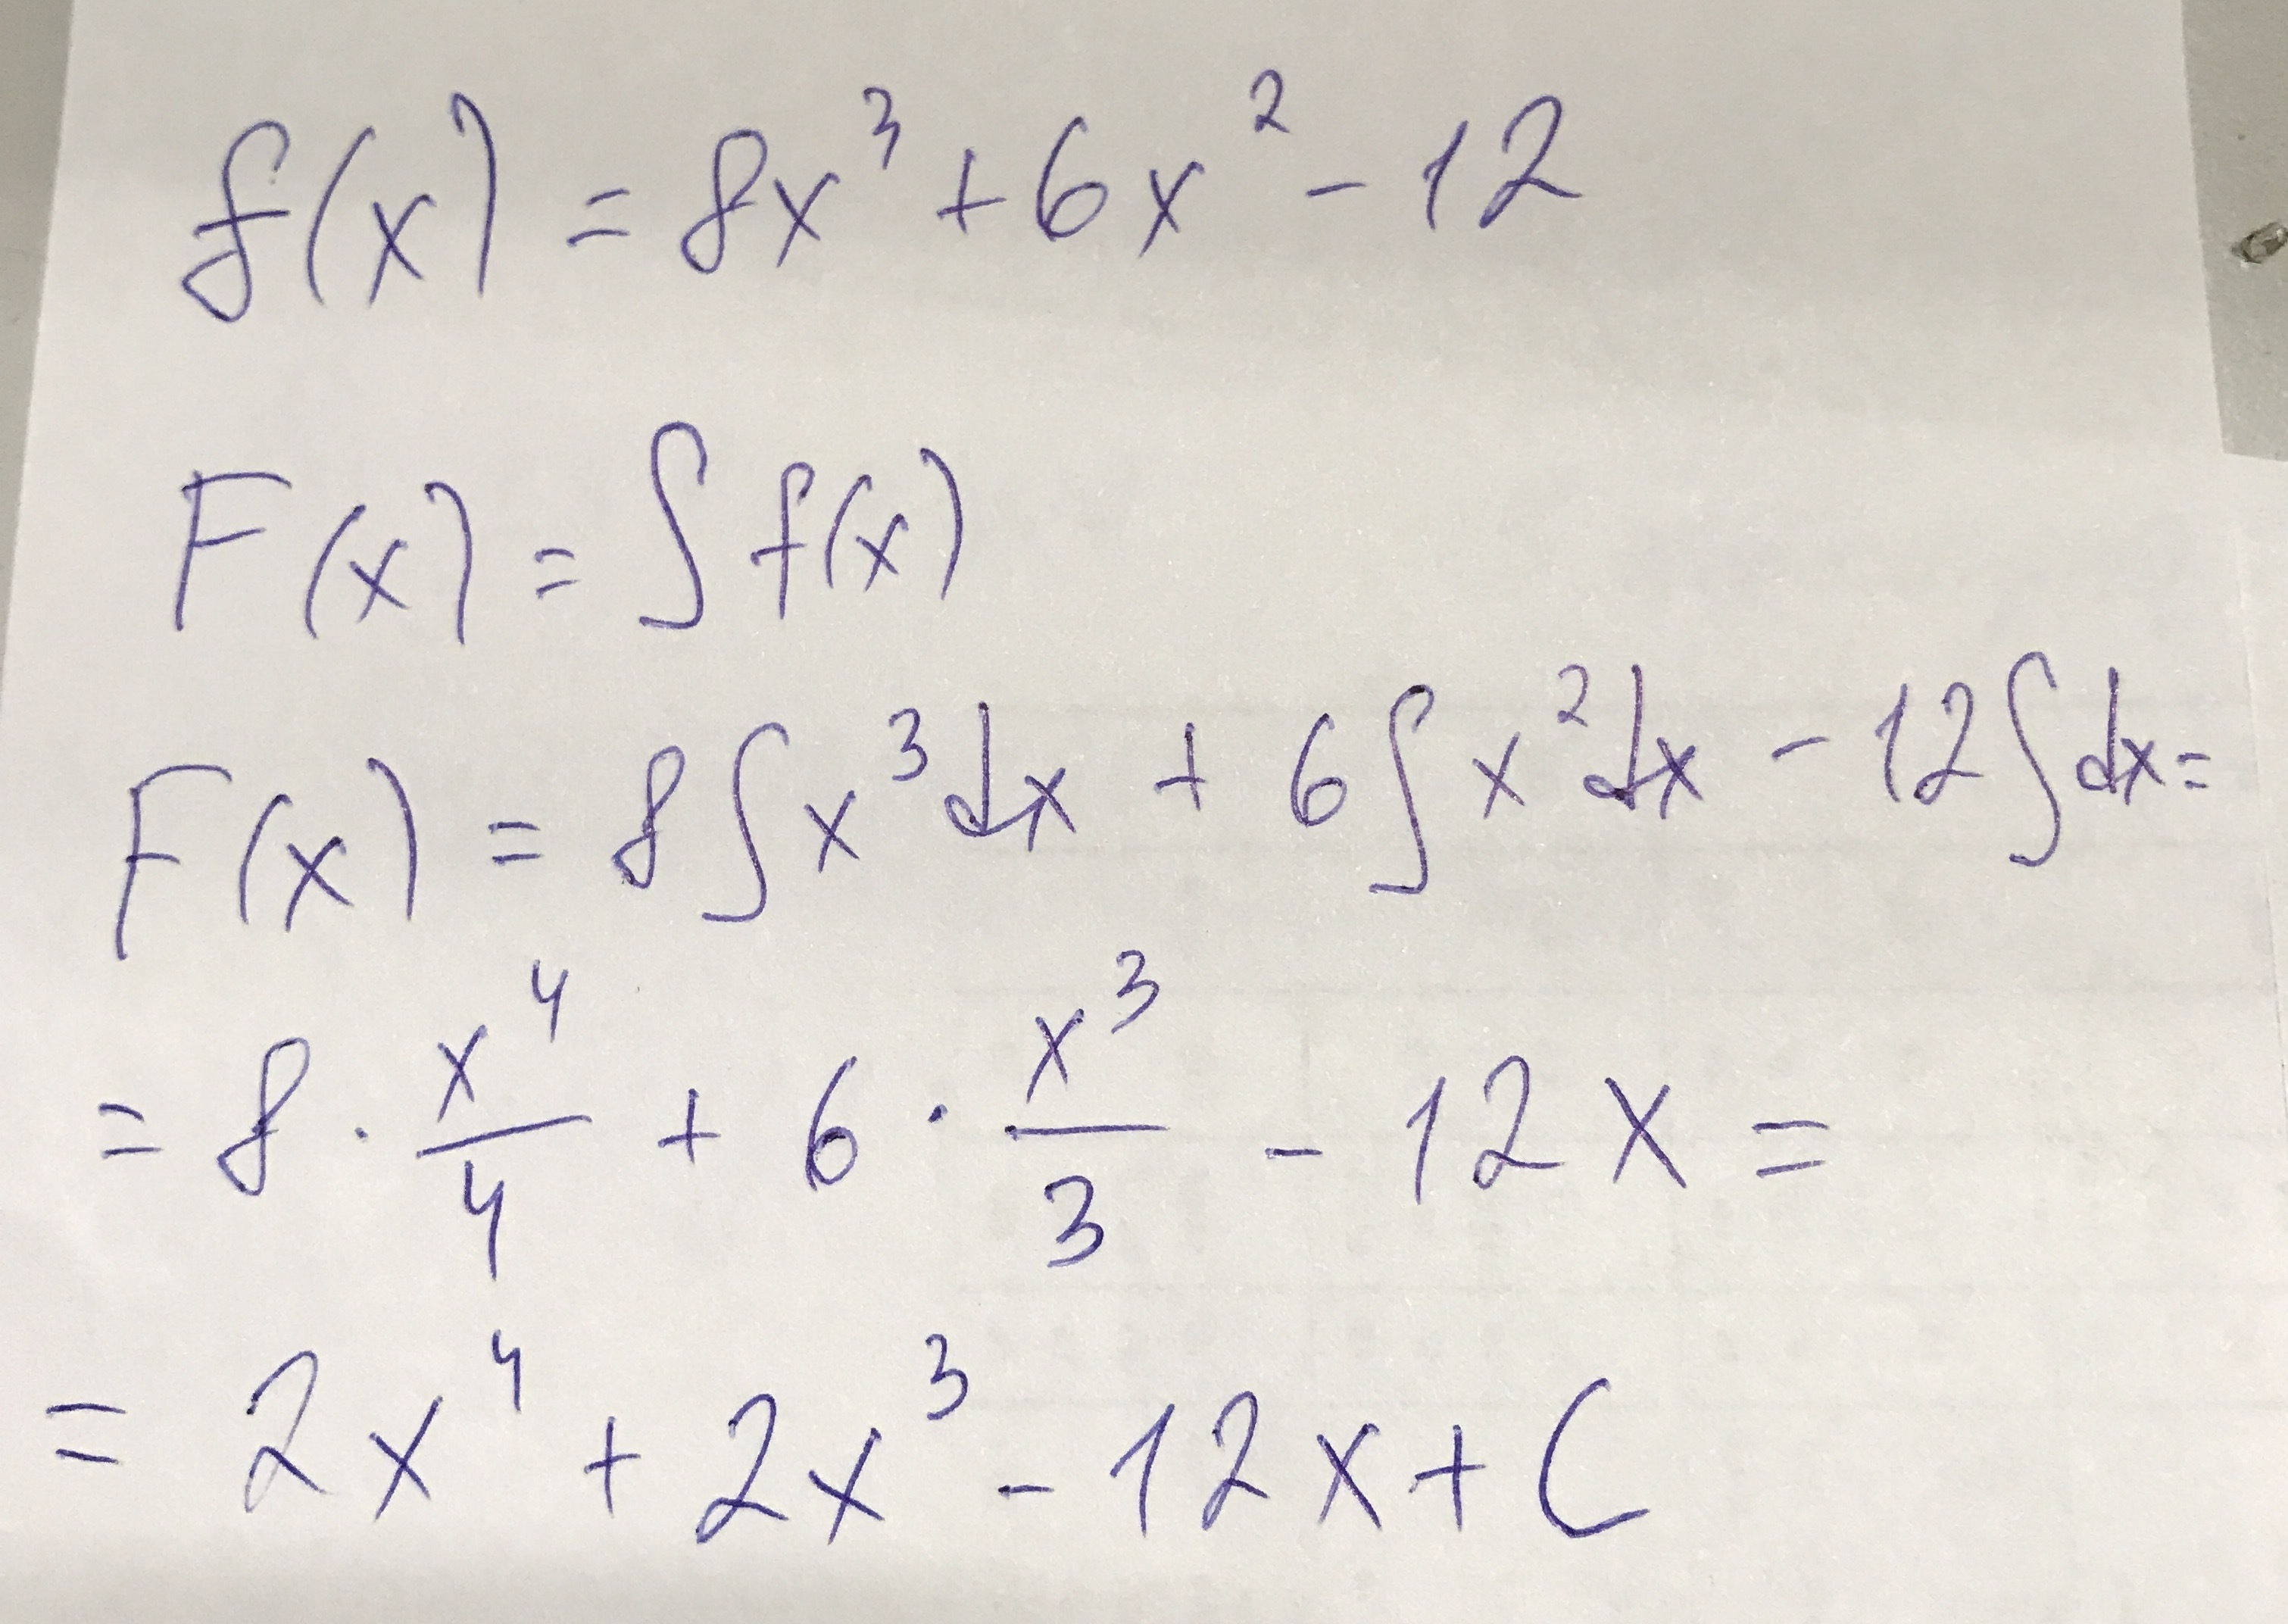 f(x) = 8x³ + 6x² - 12
F(x) = ∫ f(x)
F(x) = 8∫x³dx + 6∫x²dx - 12∫dx =
= 8 · x⁴/4 + 6 · x³/3 - 12x =
= 2x⁴ + 2x³ - 12x + C